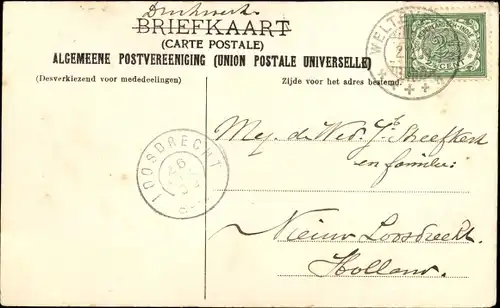 Drukwerk
BRIEFKAART
(CARTE POSTALE)
ALGEMEENE POSTVEREENIGING (UNION POSTALE UNIVERSELLE)
(Desverkiezend voor mededeelingen) Zijde voor het adres bestemd.
WELTE
2½
CENT
LOOSDRECHT
Mej. de Wed. Jb Streefkerk
en familie.
Nieuw Loosdrecht.
Holland.